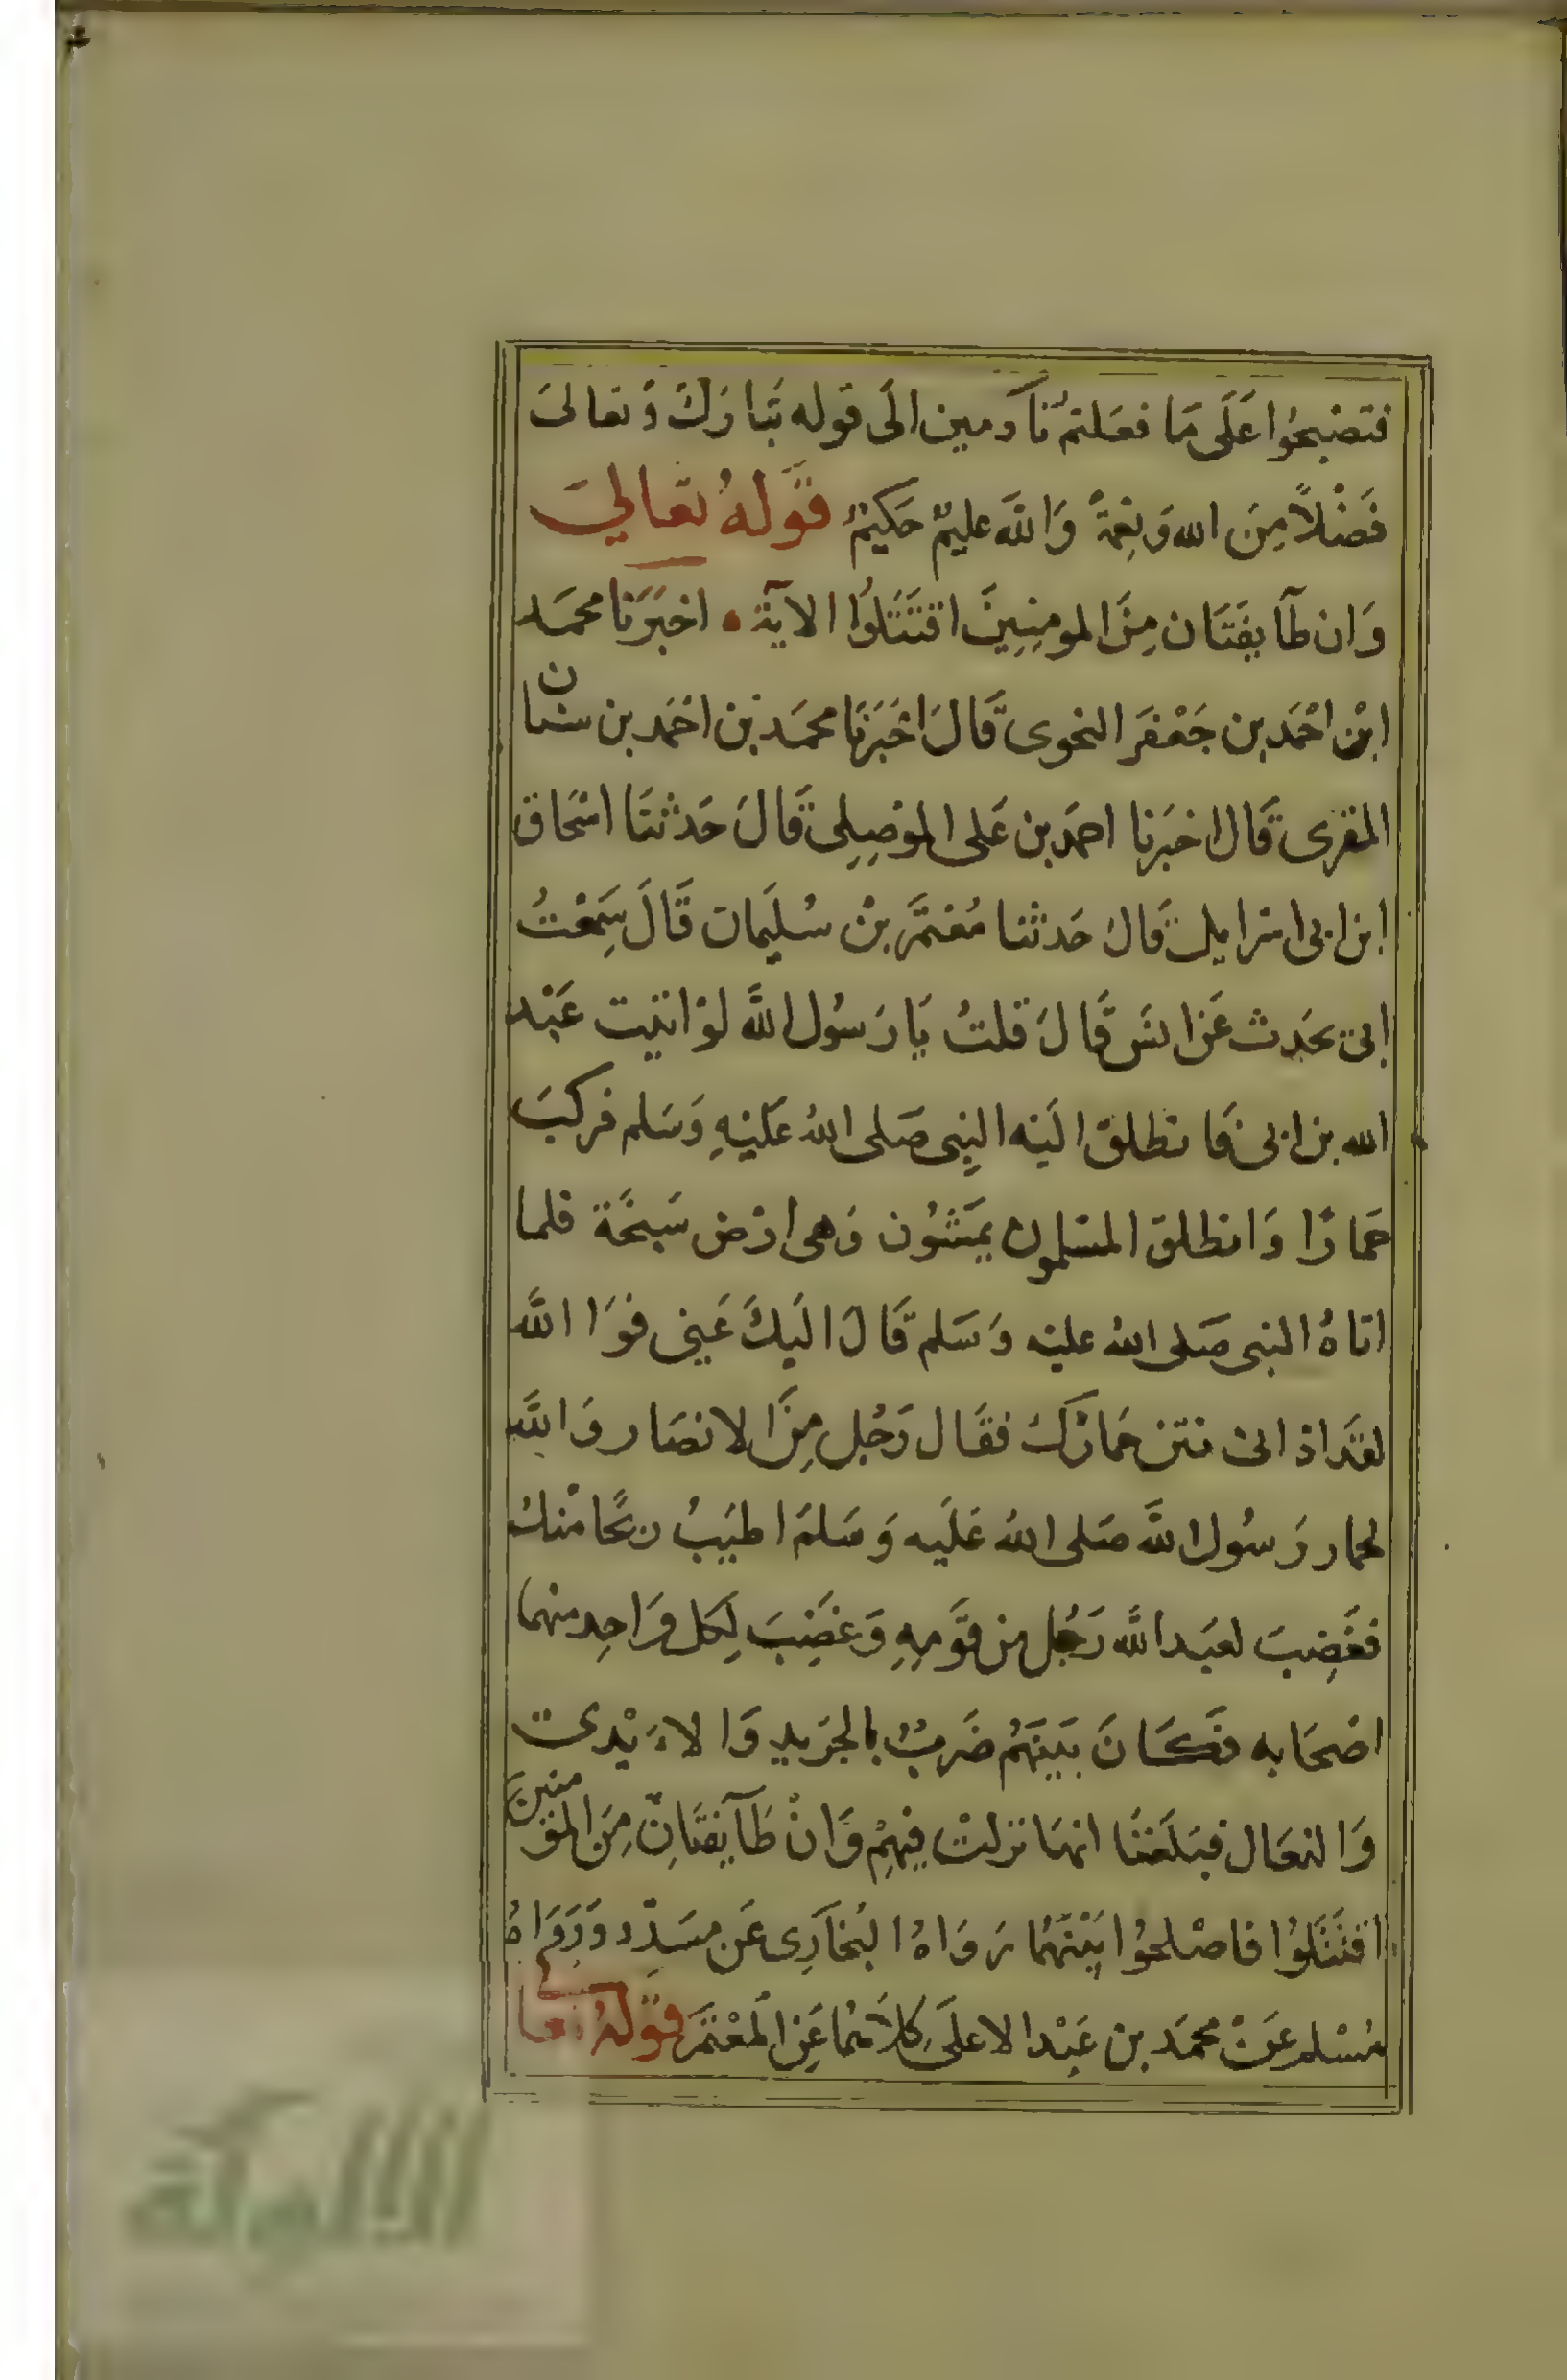 فتصبحوا عَلَى مَا فعَلتم نَادمين الَى قوله تبَارَكَ وَتعالىَ
فَضْلاً مِنَ الله وَنِعمَةً وَاللَّه عليمٌ حَكيمٌ قَولهُ تعَالىَ
وَان طَآيفَتَان مِنَ المومِنِينَ اقتَتَلوُا الايَة اخبَرَنا محمَد
ابْن احْمَد بن جَعْفَر النحوى قَالَ اخْبَرَنَا محمَد بن احمَد بن سنان
المقرى قَال اخبَرنا احمَد بن عَلى الموْصِلِى قَالَ حَدثنَا اسْحَاق
ابن ابى اسرايل قَالَ حَدثنا مُعْتمَر بْن سُليَمان قَالَ سَمِعْتُ
ابى يحَدث عَن انسَ قَالَ قلتُ يَا رَسُول اللَّه لوْ اتيت عَبْد
الله بن ابى فَانطلق اليَه النبِى صَلى اللهُ عَليْهِ وَسَلم فركبَ
حمَارًا وَانطلق المسْلمون يمَشوُن وَهى ارْض سَبخَة فلما
اتاهُ النبى صَلى اللهُ عليه وَسَلم قَالَ اليَكَ عَنِى فوَا اللَّه
لقدَ اذانى نتن حمَارك فقَال رَجُل مِنَ الانصَار وَاللَّه
لحمار رَسُول اللَّه صَلى اللهُ عَليَه وَسَلمَ اطيَبُ ريحًا منْكَ
فغَضِبَ لعبَد اللَّه رَجُل من قوَمِهِ وَغضِبَ لِكل وَاحِد منهما
اصْحَابه فكَانَ بَينَهُم ضَربٌ بالجَريد وَالايْدى
وَالنعَال فبَلغنَا انهَا نزلتْ فِيهِمْ وَانْ طَآيفتَانِ مِنَ المؤمنين
اقتَتَلوُا فاصْلحوُا بَيْنَهُمَا رَوَاهُ البُخَارِى عَن مسَدِّد وَرَوَاهُ
مُسْلم عَنْ محمَد بن عَبْد الاعلَى كِلاَهُمَا عَن المعْتمَر قوَلهُ تعَا
لى
الالوكة